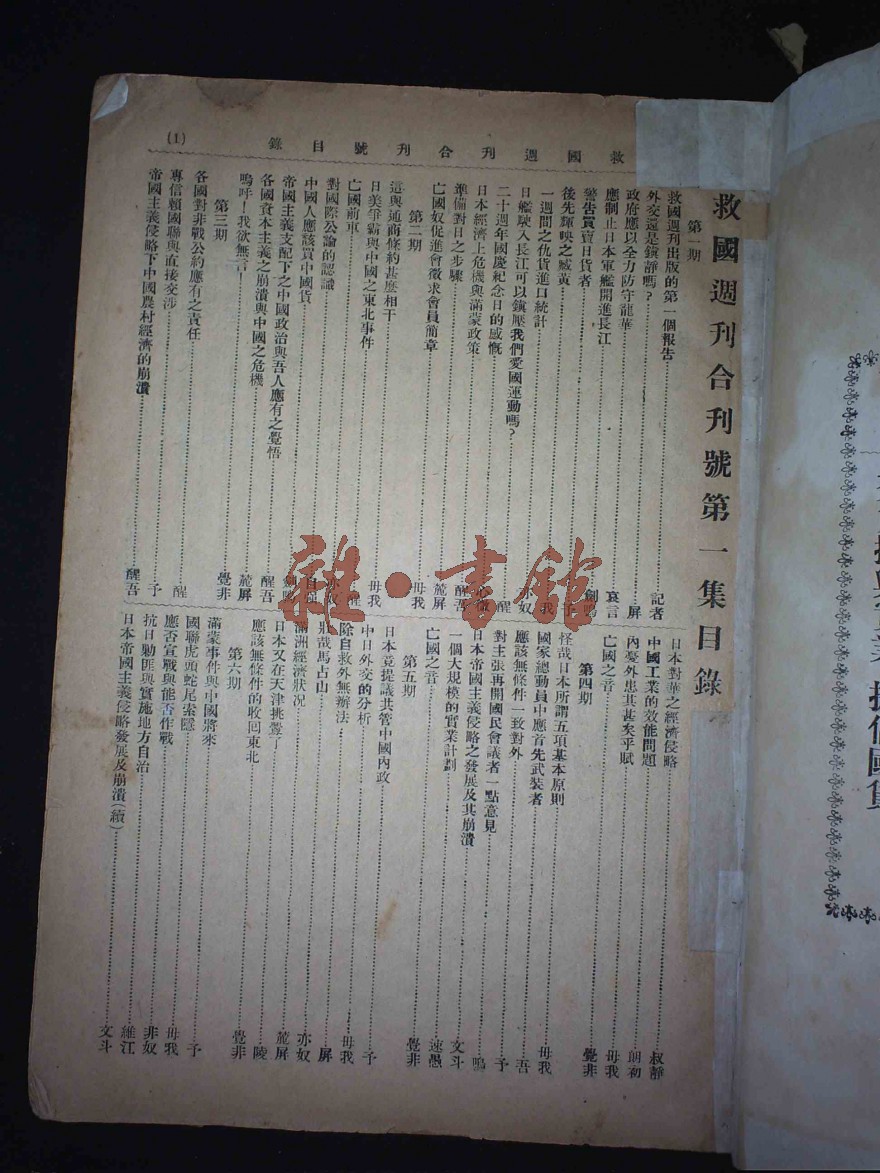 救國週刊合刊號目錄
(1)
救國週刊合刊號第一集目錄
第一期
救國週刊出版的第一個報告 記者
外交還是鎮靜嗎? 屏
政府應以全力防守龍華
應制止日本軍艦開進長江 哀言
警告買賣日貨者 劍鳴
後先輝映之臧黃
一週間之仇貨進口統計 我
日艦駛入長江可以鎮壓我們愛國運動嗎? 亦奴
二十週年國慶紀念日的感慨 醒
日本經濟上危機與滿蒙政策
準備對日之步驟 醒吾
亡國奴促進會徵求會員簡章 蔍屏
第二期 毋我
這與通商條約甚麼相干
日美爭霸與中國之東北事件 毋我
亡國前車 醒
對國際公論的認識 亦奴
中國人應該買中國貨 自強
帝國主義支配下之中國政治與吾人應有之覺悟
各國資本主義之崩潰與中國之危機 醒吾
嗚呼!我欲無言! 蔍屏
第三期 覺非
各國對非戰公約應有之責任
專信賴國聯與直接交涉 醒
帝國主義侵略下中國農村經濟的崩潰 予
醒吾
日本對華之經濟侵略 叔靜
中國工業的效能問題 朗初
內憂外患其甚矣乎賦 毋我
亡國之音 覺非
第四期
怪哉日本所謂五項基本原則
國家總動員中應首先武裝者 毋我
應該無條件一致對外 吾
對主張再開國民會議者一點意見 予
日本帝國主義侵略之發展及其崩潰 鳴
一個大規模的實業計劃 文斗
亡國之音 速愚
第五期 覺非
日本竟提議共管中國內政
中日外交的分析 予
除自救外無辦法 毋我
壯哉馬占山 屏
滿洲經濟狀況 亦奴
日本又在天津挑釁了 蔍屏
應該無條件的收回東北 陵
第六期 覺非
滿蒙事件與中國將來
國聯虎頭蛇尾索隱 予
應否宣戰與能否作戰 毋我
抗日勦匪與實施地方自治 非奴
日本帝國主義侵略發展及崩潰(續) 維江
文斗
雜·書館